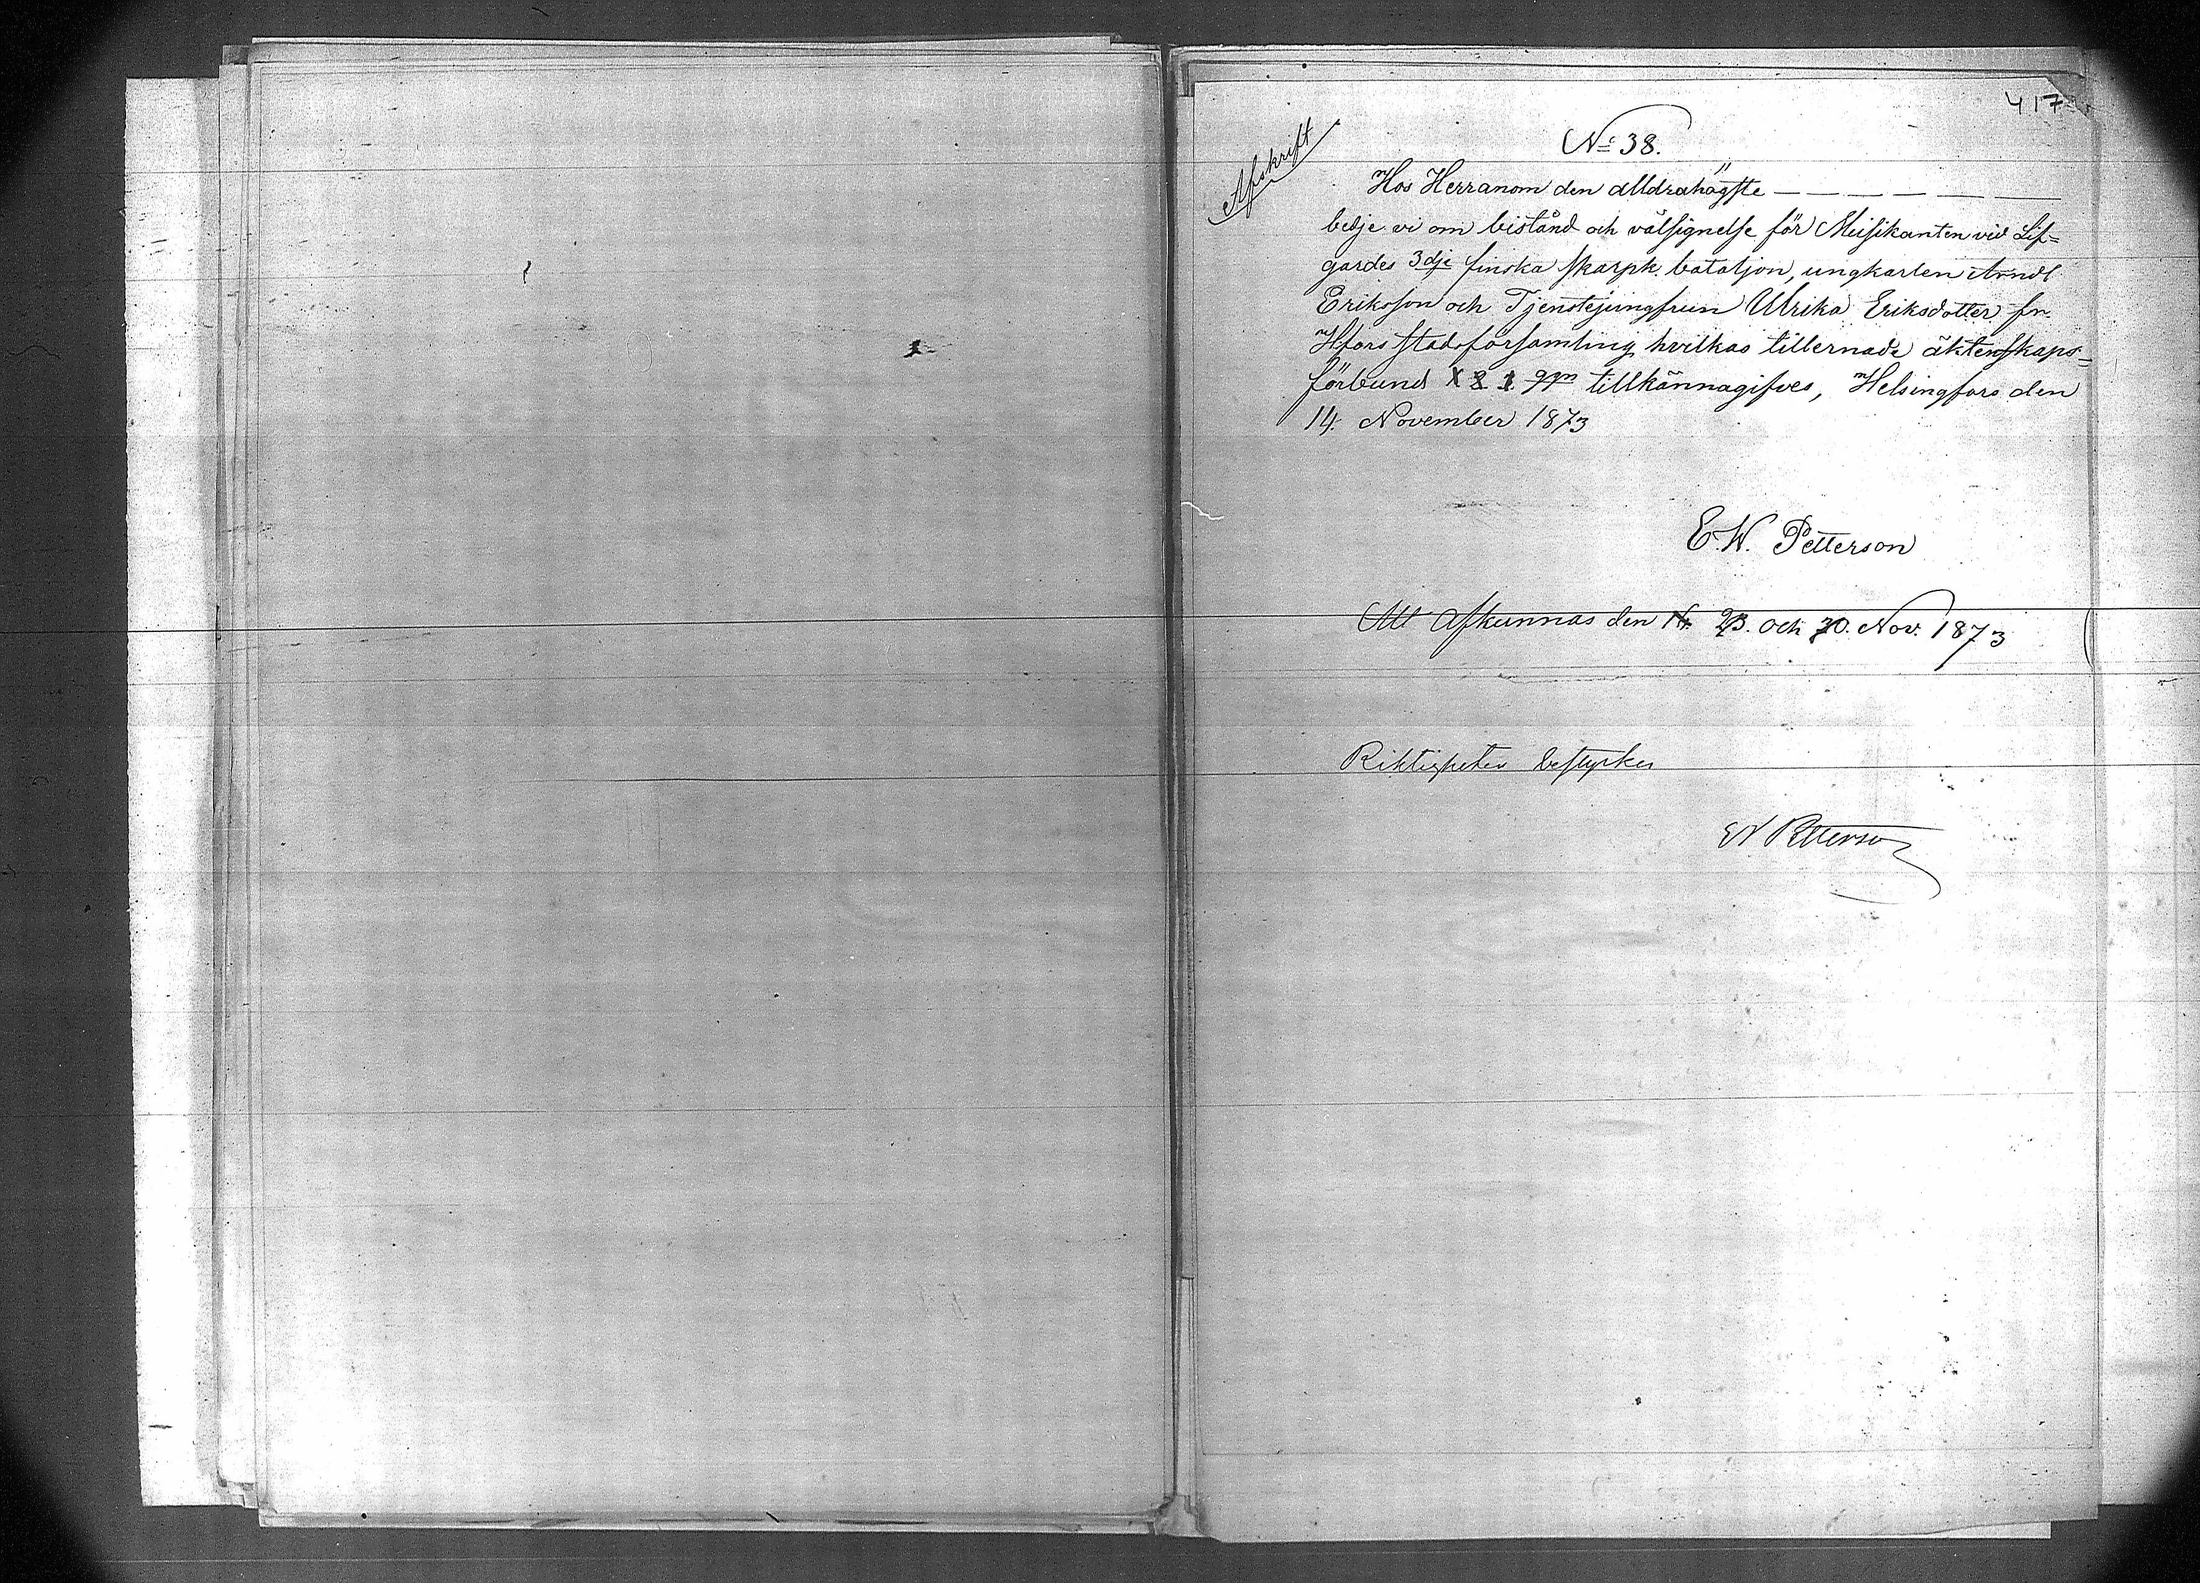 417
Afskrift
No 38.
Hos Herranom den alldrahögste — — — — —
bedje vi om bistånd och välsignelse för Musikanten vid Lif=
gardes 3dje finska skarpk. bataljon, ungkarlen Arndt
Eriksson och Tjenstejungfrun Ulrika Eriksdotter fr.
Hfors Stadsförsamling, hvilkas tillernade äktenskaps=
förbund X 2 1 ggn tillkännagifves, Helsingfors den
14. November 1873
E. W. Petterson
Att afkunnas den 23. och 30. Nov. 1873
Riktigheten bestyrker
EW Petterson